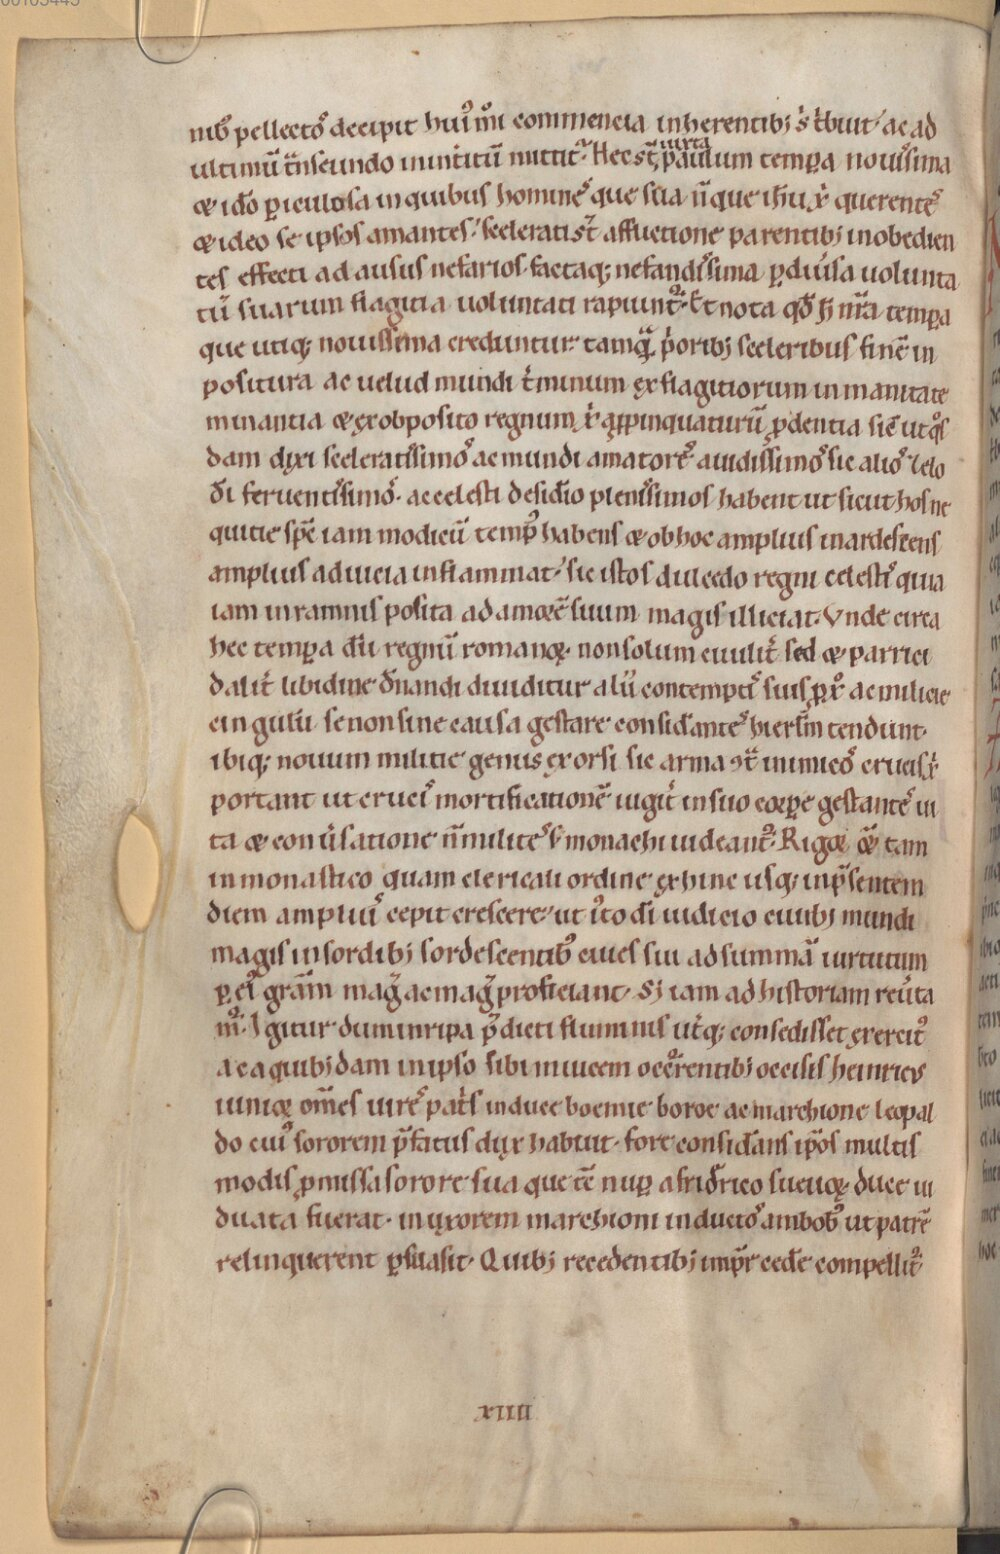 nib᷒ pellectoˢ decipit hui᷒ mͥ commencia inherentibꝫ sͥ tͥbuit / ac ad
ultimū t̄nseundo ininͥtitū mittitͬ. Hec st̄ iuxta paulum tempꝑa nouiˢsima
⁊ idō ꝑiculosa in quibus homineˢ que sua n̄ que ih̄u xͥ querenteˢ
⁊ ideo se ipsos amantes / scelerati st̄ affuctione parentibꝫ inobedien
tes effecti ad ausus nefarios factaqꝫ nefandiˢsima ꝑ diūsa uolunta
tū suarum flagitia uoluntati rapiunt᷒. Et nota qd̄ h̄ nr̄a tempꝑa
que utiqꝫ nouissima creduntur tamqᷓ pͥoribꝫ sceleribus finē in
positura ac uelud mundi tͥminum ex flagitiorum inmanitate
minantia ⁊ ex obposito regnum xͥ ꝓpinquaturū ꝓdentia sic̄ ut qͦs
dam dixi sceleratiˢsimoˢ ac mundi amatoreˢ auidissimoˢ sic alioˢ zelo
dī feruentiˢsimoˢ. ac celesti desid̄io pleniˢsimos habent ut sicut hos ne
quitie spē iam modicū temp᷒ habens ⁊ ob hoc amplius inardescens
amplius ad uicia inflammat / sic istos dulcedo regni celestiˢ quia
iam in ramnis posita ad amorē suum magis illiciat. Vnde circa
hec tempꝑa dū regnū romanoꝝ non solum ciuilit̄ sed ⁊ parrici
dalit̄ libidine dn̄andi diuiditur alíí contemptiˢ suis ꝓpt̄ xͦ ac milicie
cingulū se non sine causa gestare consid̄anteˢ hierl̄m tendunt.
ibiqꝫ nouum militie genus exorsi sic arma ꝯt̄ inimicoˢ crucis xͥ
portant ut cruciˢ mortificationē iugit̄ in suo corꝑe gestanteˢ ui
ta ⁊ conūsatione n̄ militeˢ s̄ monachi uideant᷒. Rigor q̄ꝫ tam
in monastico quam clericali ordine exhinc usqꝫ in p̄sentem
diem ampliuˢ cepit crescere / ut iͥto dī iudicio ciuibꝫ mundi
magis in sordibꝫ sordescentib᷒ ciues sui ad summā uirtutum
ꝑ ei᷒ gr̄am mag̃ ac mag̃ proficiant. Sꝫ iam ad historiam reūta
m᷒. Igitur dum in ripa p̄dicti fluminis ut̄qꝫ consedisset exercit᷒
ac a quibꝫdam in ipso sibi inuicem occ᷒rrentibꝫ occisis heinricus
iunior om̄es uireˢ pat̄s in duce boemie boroe ac marchione leopal
do cui᷒ sororem p̄fatus dux habuit. fore consid̄ans ip̄os multis
modis ꝓmissa sorore sua que tē nuꝑ a frid̄rico sueuoꝝ duce ui
duata fuerat. in uxorem marchioni inductoˢ ambob᷒ ut patrē
relinquerent ꝑsuasit. Quibꝫ recedentibꝫ imp̄r ced̄e compellit᷒.
xiiii